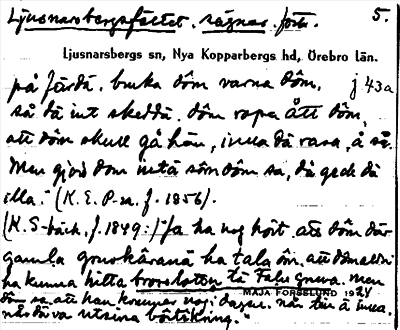 Ljusnarsbergsfältet. sägner. forts. 5.
Ljusnarsbergs sn, Nya Kopparbergs hd, Örebro län.
på färdä, bruka dôm varna dôm, f 43a
så dä int skeddä. dôm ropa ått dôm,
att dôm skull gå hän, inna dä rasa, å sô.
Men gjord dom intä sôm dôm sa, då geck dä
illa." (K. E. P-n. f. 1856).
(K. S-bäck, f. 1849:) "Ja ha nog hört, att dôm där
gamla gruvkäranä ha tala ôm, att dôm aldri
ha kunna hitta brovslotten te Falu gruva. Men
dôm sa, att han kommer nog i dagen, når
MAJA FORSSLUND 1924